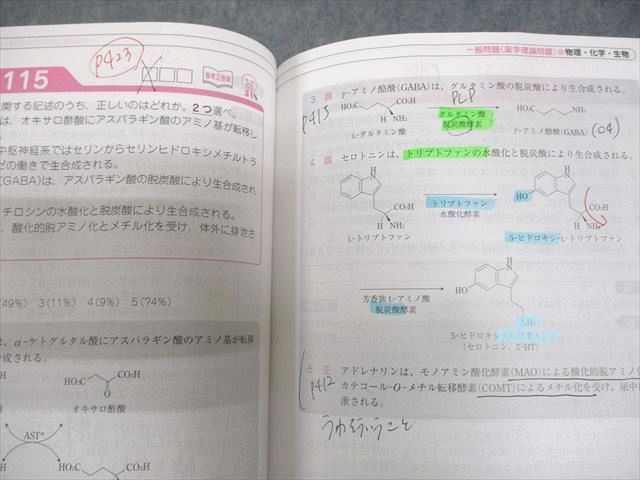 p423
115
参考正答率
31%
関する記述のうち、正しいのはどれか。2つ選べ。
は、オキサロ酢酸にアスパラギン酸のアミノ基が転移し
中枢神経系ではセリンからセリンヒドロキシメチルトラ
ゼの働きで生合成される。
(GABA)は、アスパラギン酸の脱炭酸により生合成され
チロシンの水酸化と脱炭酸により生合成される。
、酸化的脱アミノ化とメチル化を受け、体外に排泄さ
(49%) 3(11%) 4(9%) 5(74%)
は、α-ケトグルタル酸にアスパラギン酸のアミノ基が転移
合成される。
HO₂C
CO₂H
O
オキサロ酢酸
AST*
HO₂C
CO₂H
一般問題(薬学理論問題) 物理・化学・生物
3 誤 γ-アミノ酪酸(GABA)は、グルタミン酸の脱炭酸により生合成される。
p415
HO₂C
CO₂H
NH₂
L-グルタミン酸
PLP
グルタミン酸
脱炭酸酵素
HO₂C
NH₂
γ-アミノ酪酸(GABA)
(C4)
4 誤 セロトニンは、トリプトファンの水酸化と脱炭酸により生合成される。
H
N
CO₂H
NH₂
L-トリプトファン
トリプトファン
水酸化酵素
HO
H
N
CO₂H
NH₂
5-ヒドロキシ-L-トリプトファン
芳香族L-アミノ酸
脱炭酸酵素
HO
H
N
NH₂
5-ヒドロキシトリプタミン
(セロトニン、5-HT)
5 正 アドレナリンは、モノアミン酸化酵素(MAO)による酸化的脱アミノ化
p412
カテコール-O-メチル転移酵素(COMT)によるメチル化を受け、尿中
泄される。